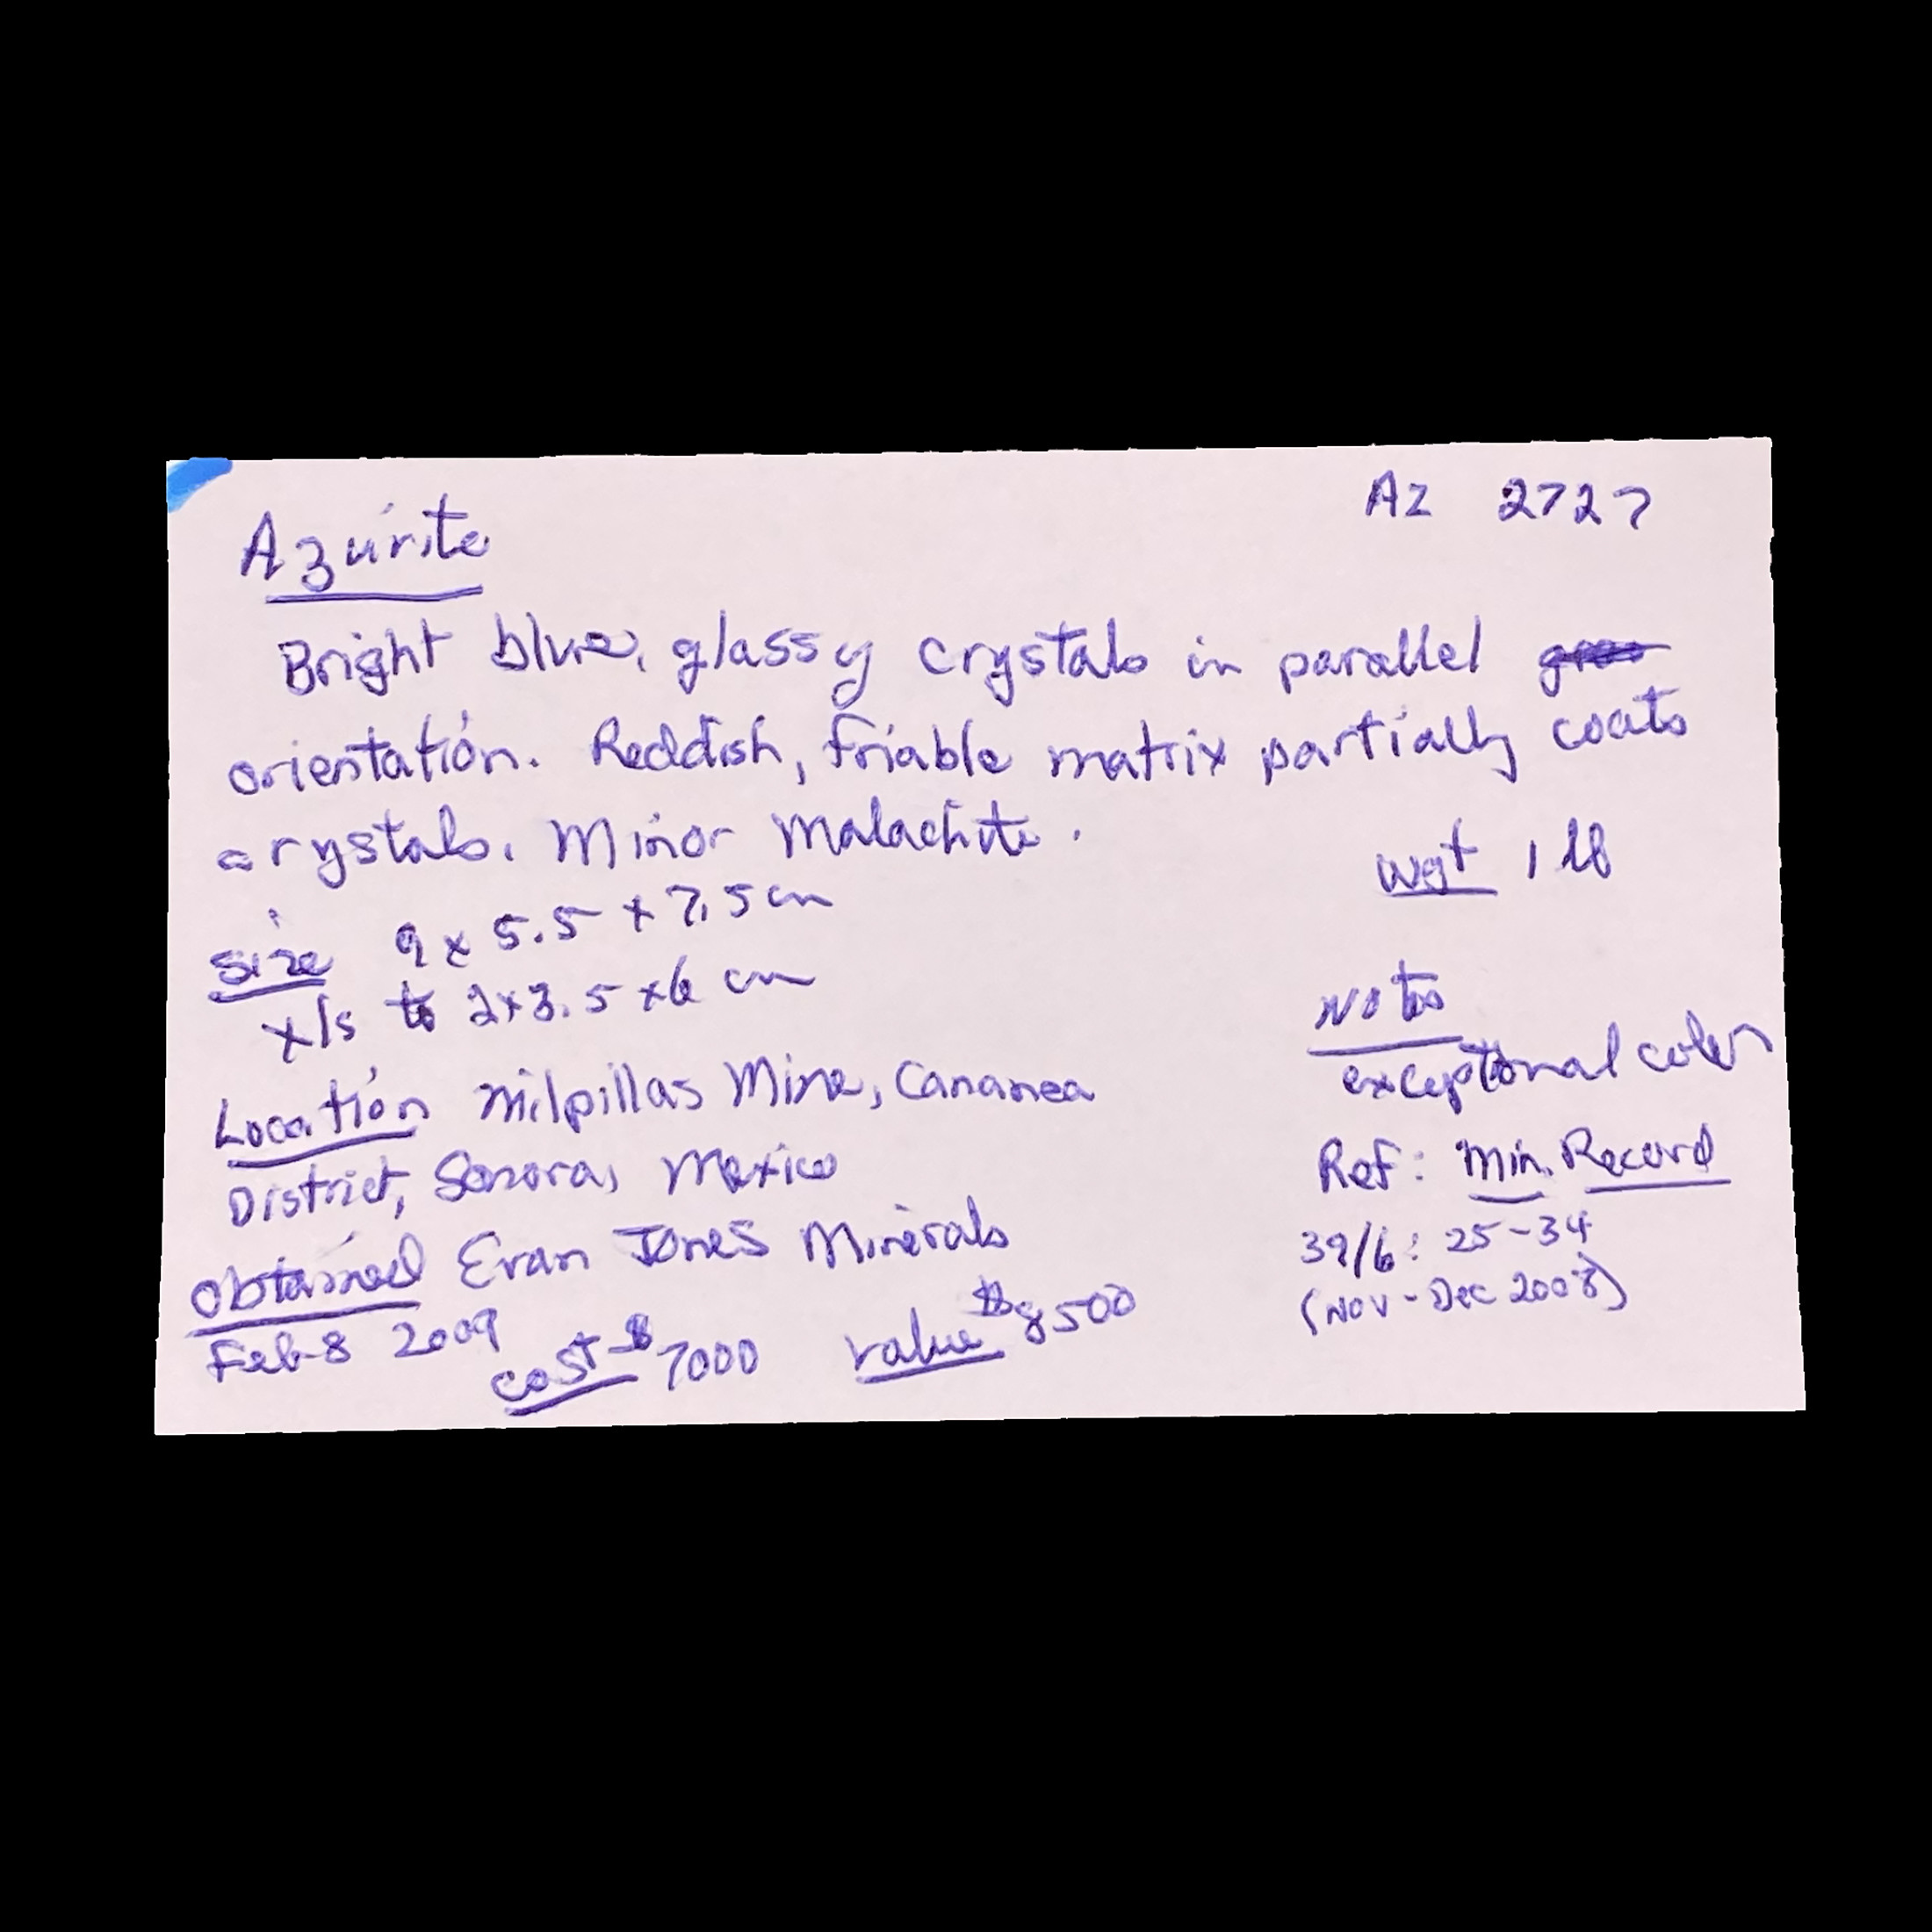 Azurite
AZ 2727
Bright blue, glassy crystals in parallel
orientation. Reddish, friable matrix partially coats
crystals. Minor Malachite.
wgt 1 lb
Size 9 x 5.5 x 7.5 cm
x/s to 2x3.5x6 cm
Notes
exceptional color
Location Milpillas Mine, Cananea
District, Sonora, Mexico
Ref: Min. Record
39/6: 25-34
(Nov-Dec 2008)
Obtained Evan Jones Minerals
Feb 8 2009
cost $7000 value $8500